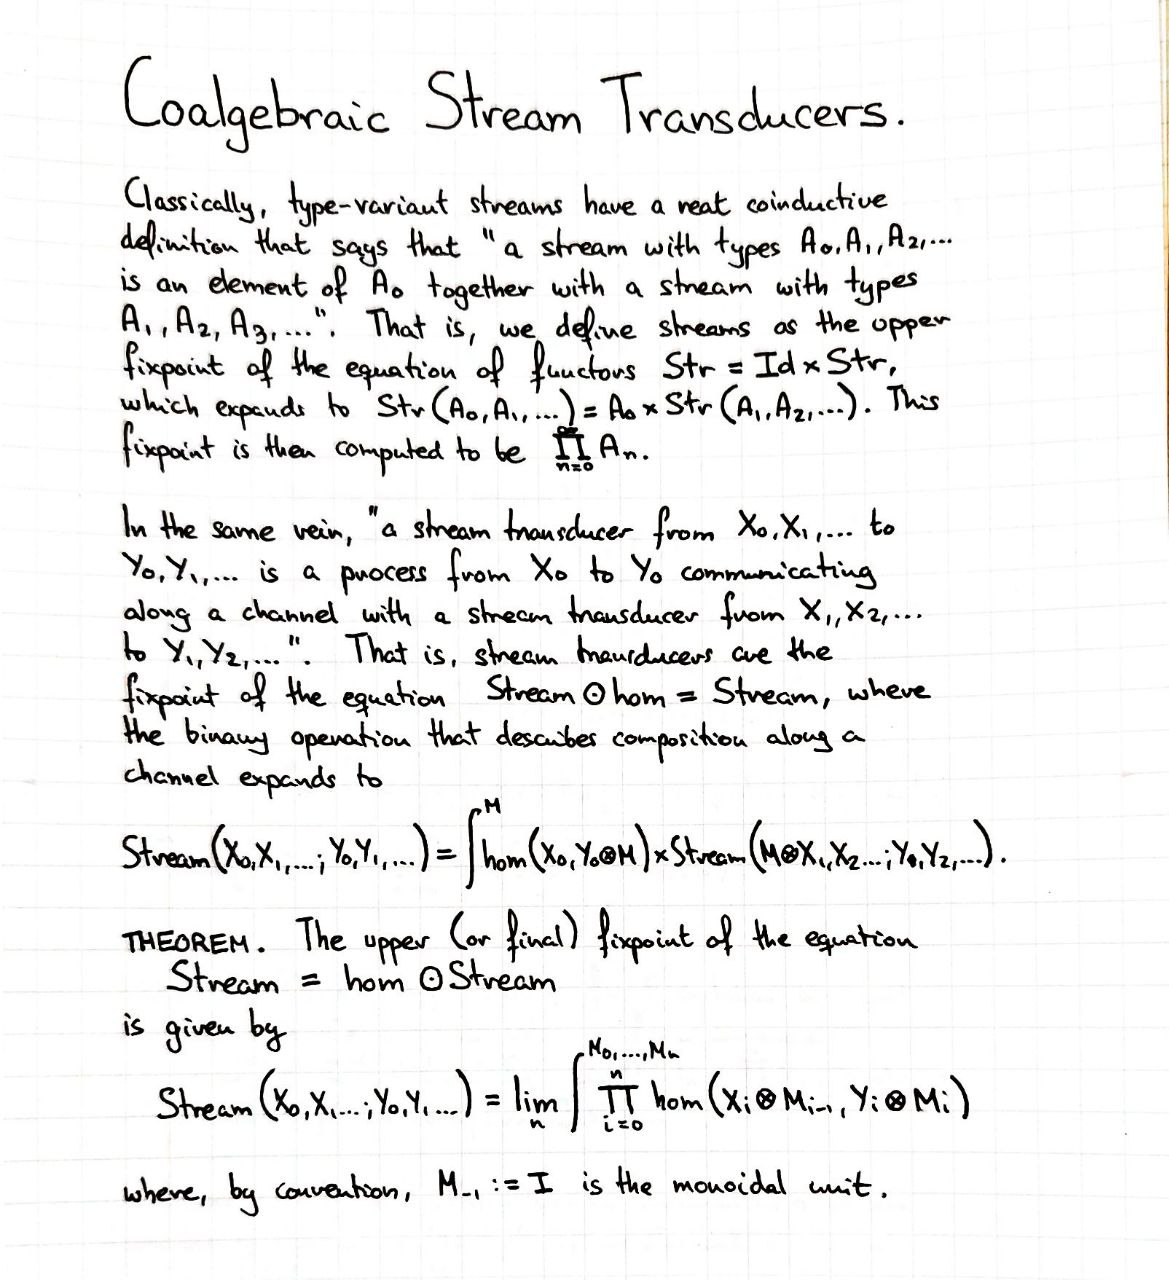 Coalgebraic Stream Transducers.
Classically, type-variant streams have a neat coinductive
definition that says that "a stream with types A₀, A₁, A₂, ...
is an element of A₀ together with a stream with types
A₁, A₂, A₃, ...". That is, we define streams as the upper
fixpoint of the equation of functors Str = Id × Str,
which expands to Str(A₀, A₁, ...) = A₀ × Str(A₁, A₂, ...). This
fixpoint is then computed to be ∏_{n=0}^{∞} Aₙ.
In the same vein, "a stream transducer from X₀, X₁, ... to
Y₀, Y₁, ... is a process from X₀ to Y₀ communicating
along a channel with a stream transducer from X₁, X₂, ...
to Y₁, Y₂, ...". That is, stream transducers are the
fixpoint of the equation Stream ⊙ hom = Stream, where
the binary operation that describes composition along a
channel expands to
Stream(X₀, X₁, ...; Y₀, Y₁, ...) = ∫^M hom(X₀, Y₀⊗M) × Stream(M⊗X₁, X₂...; Y₁, Y₂, ...).
THEOREM. The upper (or final) fixpoint of the equation
Stream = hom ⊙ Stream
is given by
Stream(X₀, X₁...; Y₀, Y₁...) = lim_n ∫^{M₀, ..., Mₙ} ∏_{i=0}^{n} hom(Xᵢ ⊗ Mᵢ₋₁, Yᵢ ⊗ Mᵢ)
where, by convention, M₋₁ := I is the monoidal unit.